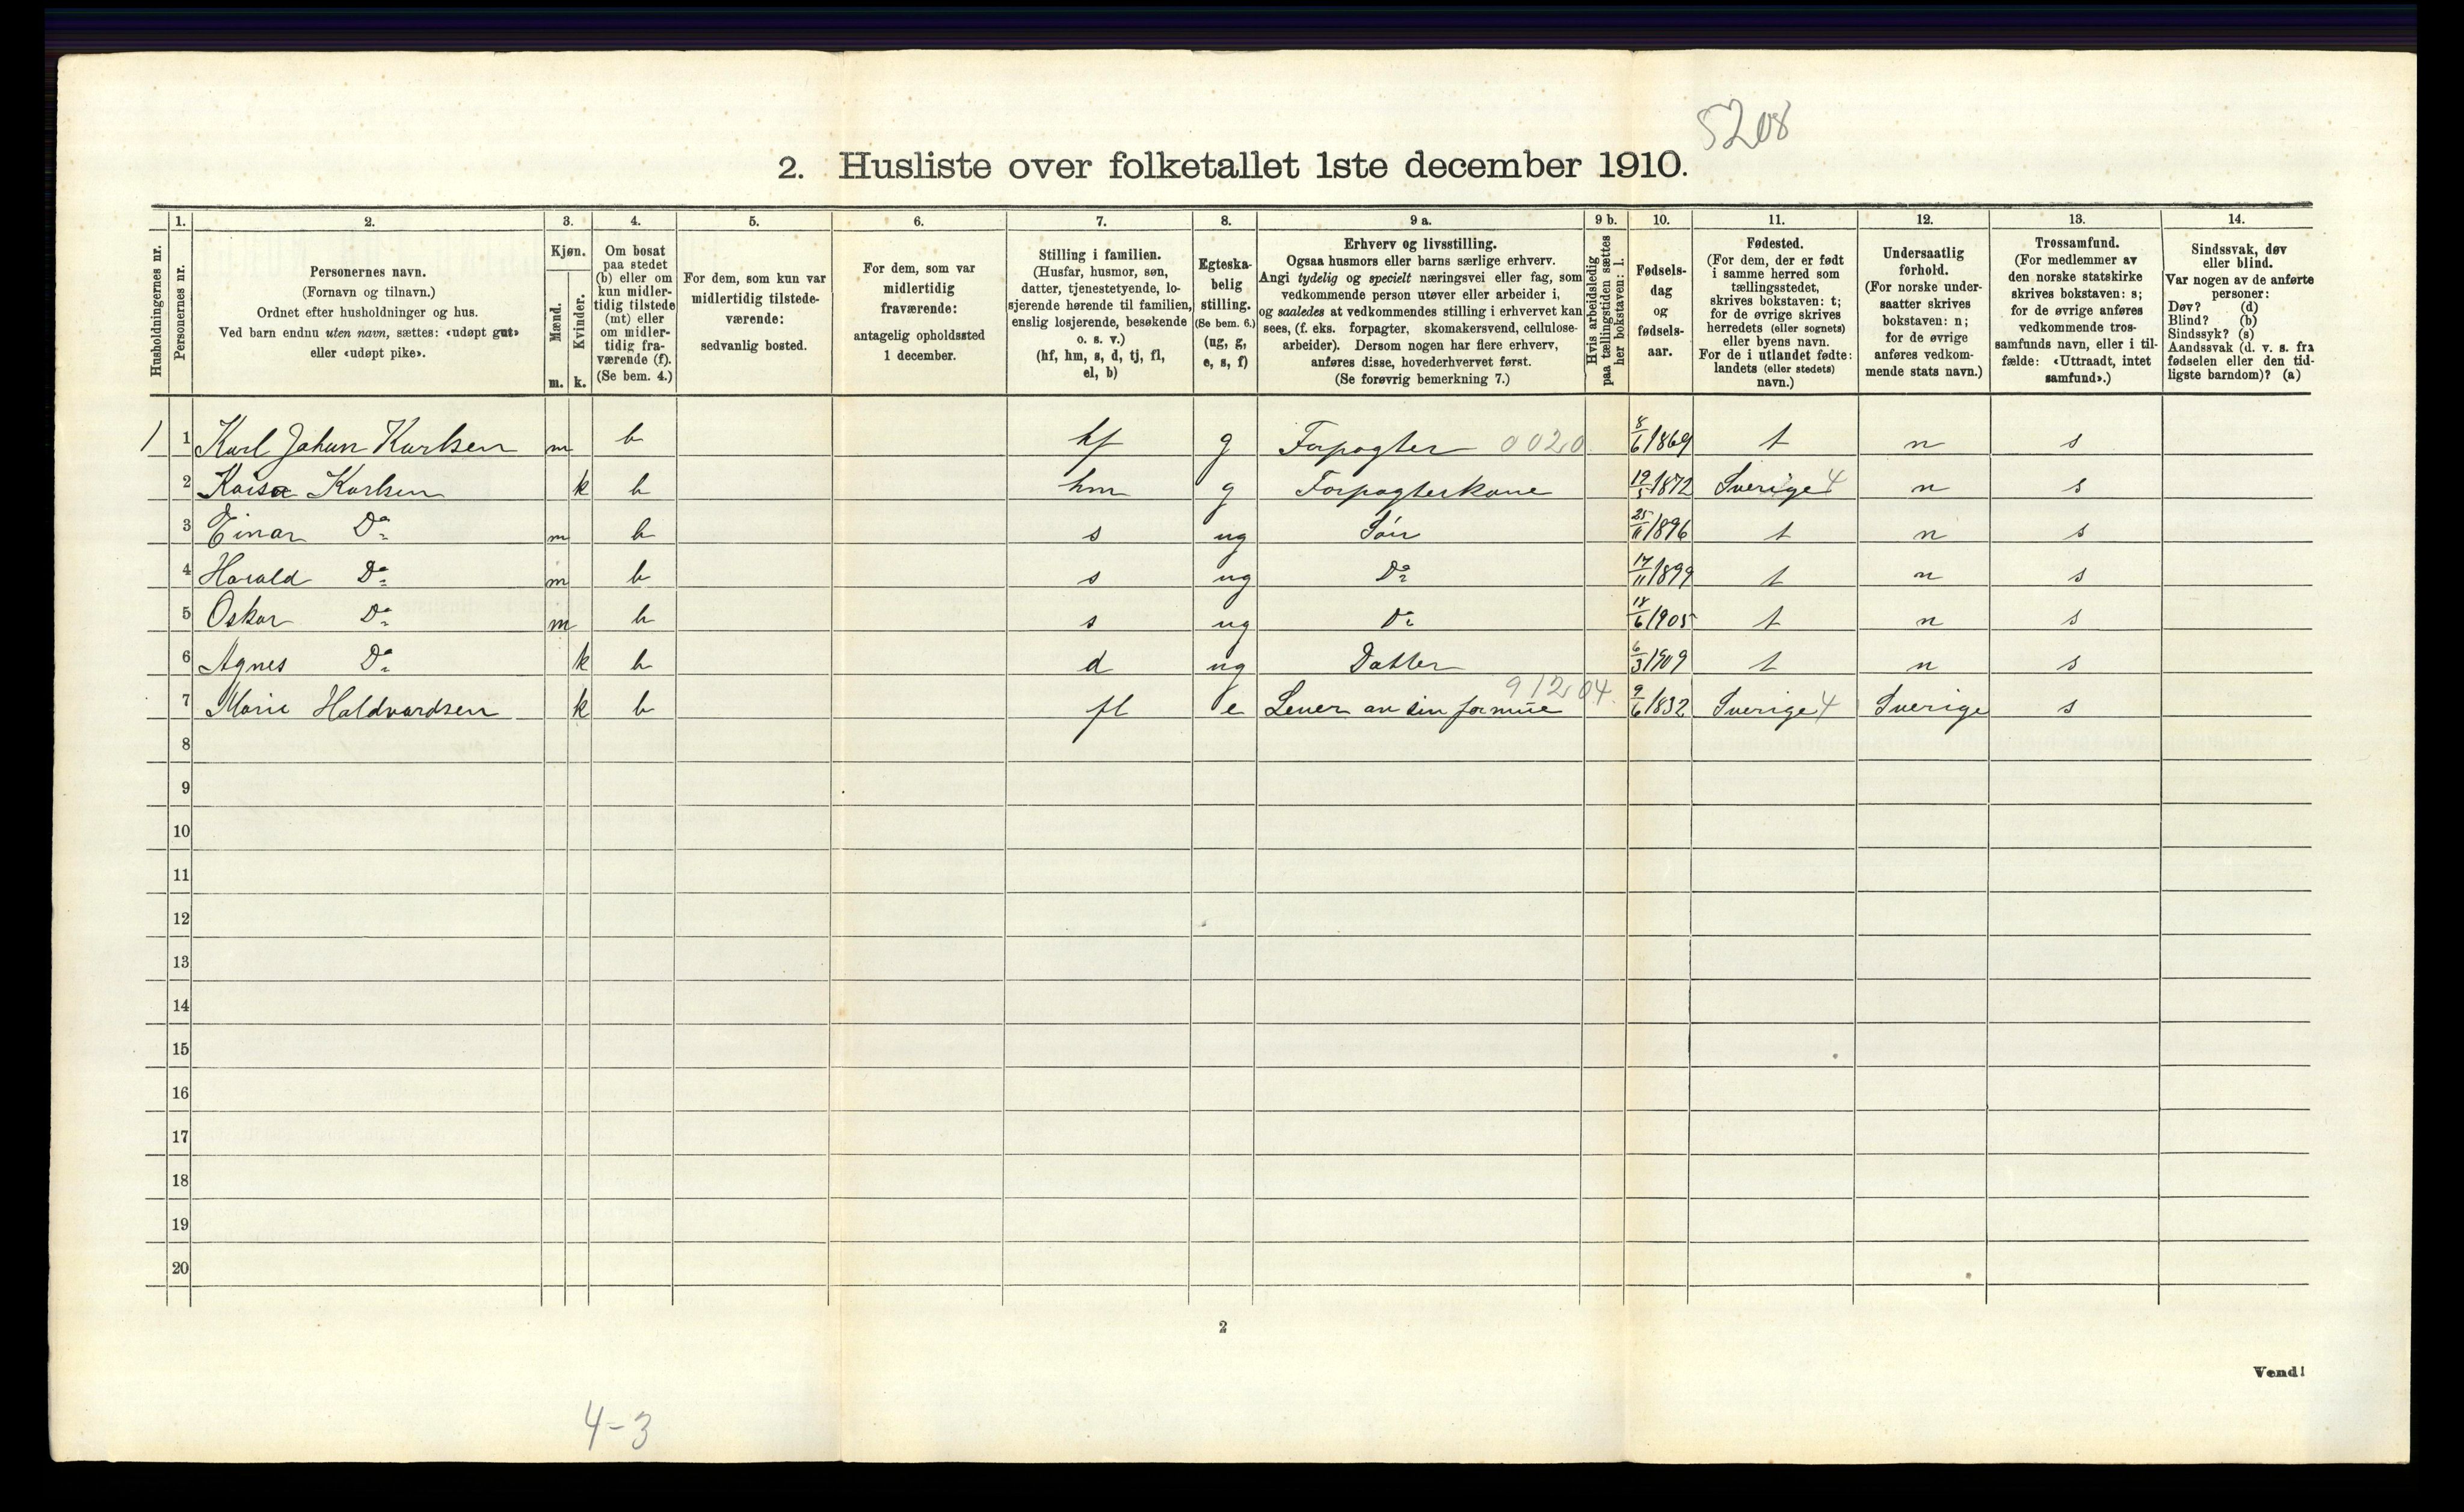 5208
2. Husliste over folketallet 1ste december 1910.
Husholdningernes nr.
1.
Personernes nr.
2.
Personernes navn.
(Fornavn og tilnavn.)
Ordnet efter husholdninger og hus.
Ved barn endnu uten navn, sættes: «udøpt gut»
eller «udøpt pike».
3.
Kjøn.
Mænd.
Kvinder.
m. k.
4.
Om bosat
paa stedet
(b) eller om
kun midler-
tidig tilstede
(mt) eller
om midler-
tidig fra-
værende (f).
(Se bem. 4.)
5.
For dem, som kun var
midlertidig tilstede-
værende:
sedvanlig bosted.
6.
For dem, som var
midlertidig
fraværende:
antagelig opholdssted
1 december.
7.
Stilling i familien.
(Husfar, husmor, søn,
datter, tjenestetyende, lo-
sjerende hørende til familien,
enslig losjerende, besøkende
o. s. v.)
(hf, hm, s, d, tj, fl,
el, b)
8.
Egteska-
belig
stilling.
(Se bem. 6.)
(ug, g,
e, s, f)
9 a.
Erhverv og livsstilling.
Ogsaa husmors eller barns særlige erhverv.
Angi tydelig og specielt næringsvei eller fag, som
vedkommende person utøver eller arbeider i,
og saaledes at vedkommendes stilling i erhvervet kan
sees, (f. eks. forpagter, skomakersvend, cellulose-
arbeider). Dersom nogen har flere erhverv,
anføres disse, hovederhvervet først.
(Se forøvrig bemerkning 7.)
9 b.
Hvis arbeidsledig
paa tællingstiden sættes
her bokstaven: l.
10.
Fødsels-
dag
og
fødsels-
aar.
11.
Fødested.
(For dem, der er født
i samme herred som
tællingsstedet,
skrives bokstaven: t;
for de øvrige skrives
herredets (eller sognets)
eller byens navn.
For de i utlandet fødte:
landets (eller stedets)
navn.)
12.
Undersaatlig
forhold.
(For norske under-
saatter skrives
bokstaven: n;
for de øvrige
anføres vedkom-
mende stats navn.)
13.
Trossamfund.
(For medlemmer av
den norske statskirke
skrives bokstaven: s;
for de øvrige anføres
vedkommende tros-
samfunds navn, eller i til-
fælde: «Uttraadt, intet
samfund».)
14.
Sindssvak, døv
eller blind.
Var nogen av de anførte
personer:
Døv? (d)
Blind? (b)
Sindssyk? (s)
Aandssvak (d. v. s. fra
fødselen eller den tid-
ligste barndom)? (a)
1 1 Karl Johan Karlsen m b hf g Forpagter 0020 8/6 1869 t n s
2 Kaisa Karlsen k b hm g Forpagterkone 19/5 1872 Sverige 4 n s
3 Einar Do m b s ug Søn 25/11 1896 t n s
4 Harald Do m b s ug Do 17/11 1899 t n s
5 Oskar Do m b s ug Do 18/6 1905 t n s
6 Agnes Do k b d ug Datter 6/3 1909 t n s
7 Marie Haldvardsen k b fl e Lever av sin formue 91204 9/6 1832 Sverige 4 Sverige s
8
9
10
11
12
13
14
15
16
17
18
19
20
2
Vend!
4-3